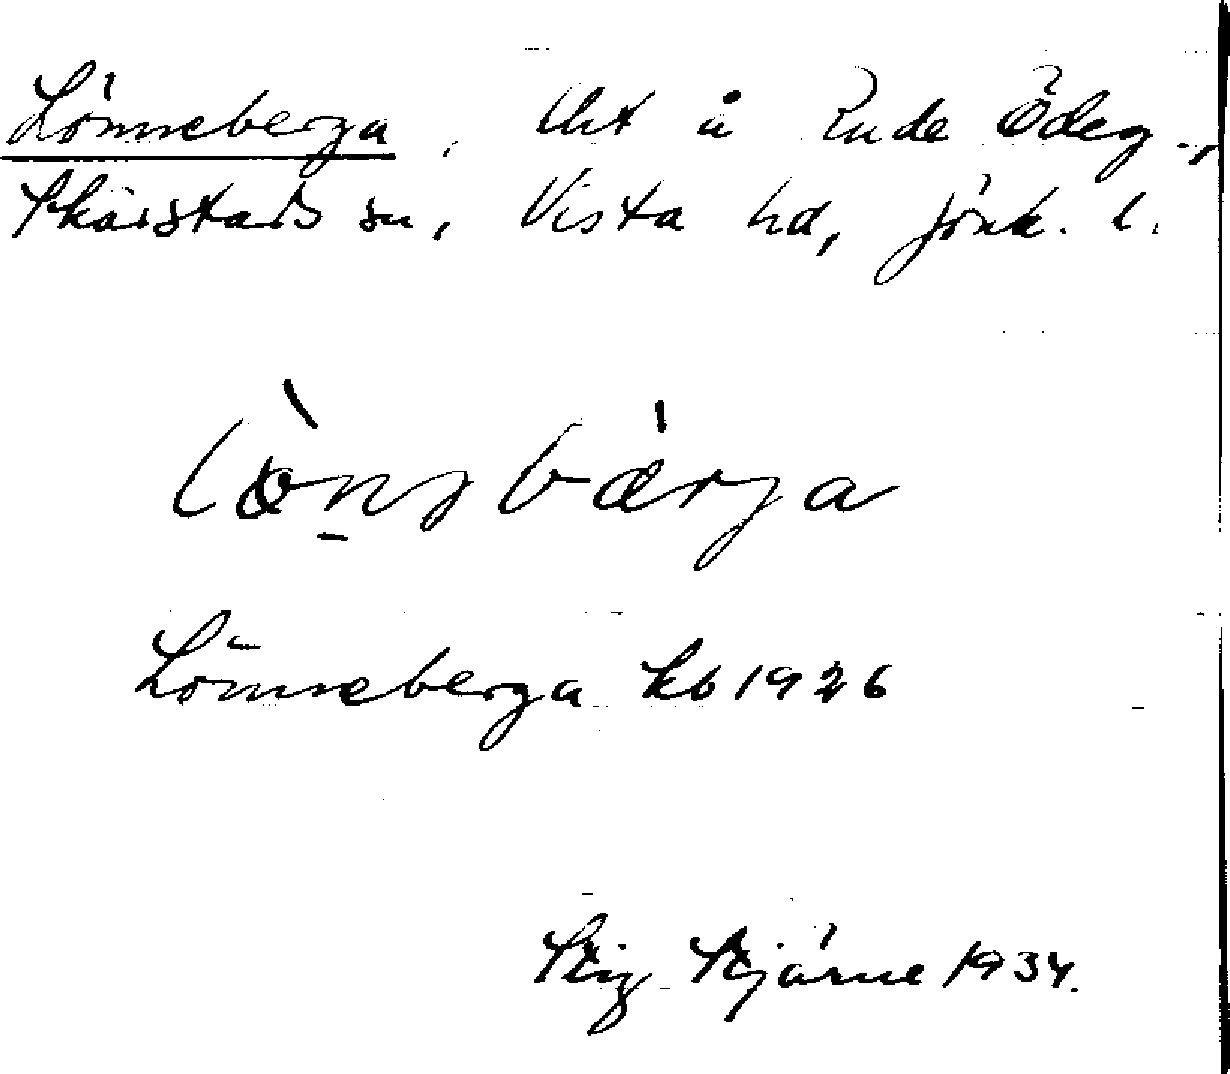 Lönneberga, lht å Rude Ödeg.,
Skärstads sn, Vista hd, Jönk. l.
Lönneberga kb 1926
Stig Stjärne 1934.